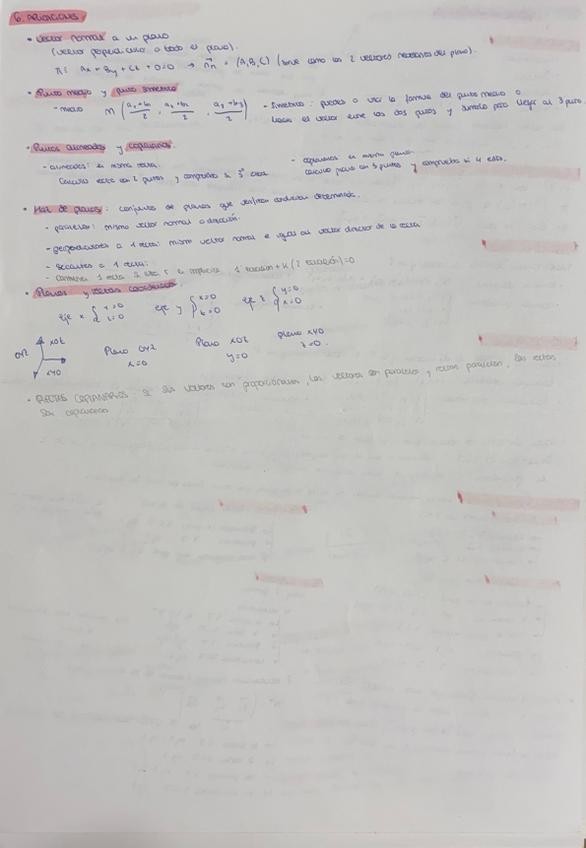 6. APLICACIONES
• Vector normal a un plano
(vector perpendicular a todo el plano).
π: Ax + By + Cz + D = 0 → n⃗π = (A, B, C) (sirve como los 2 vectores necesarios del plano).
• Punto medio y punto simétrico
- medio M (a₁+b₁/2, a₂+b₂/2, a₃+b₃/2) - Simétrico: puedes o usar la fórmula del punto medio o
hacer el vector entre los dos puntos y sumarlo para llegar al 3 punto
• Puntos alineados y coplanarios.
- alineados: en misma recta.
Calculo recta con 2 puntos, y compruebo si 3º está
- coplanarios en mismo plano.
calculo plano con 3 puntos y compruebo si 4 está.
• Haz de planos: conjunto de planos que verifican condición determinada.
- paralelos: mismo vector normal o dirección.
- perpendiculares a 1 recta: mismo vector normal e igual al vector director de la recta
- secantes a 1 recta:
1 ecuación + K (2 ecuación) = 0
• Planos y rectas coordenadas
eje x { y=0 z=0 eje y { x=0 z=0 eje z { y=0 x=0
XOZ
OYZ
XYO
Plano OYZ x=0
Plano XOZ y=0
plano XYO z=0.
• RECTAS COPLANARIAS si sus vectores son proporcionales, los vectores son paralelos y rectas paralelas, las rectas
son coplanarias